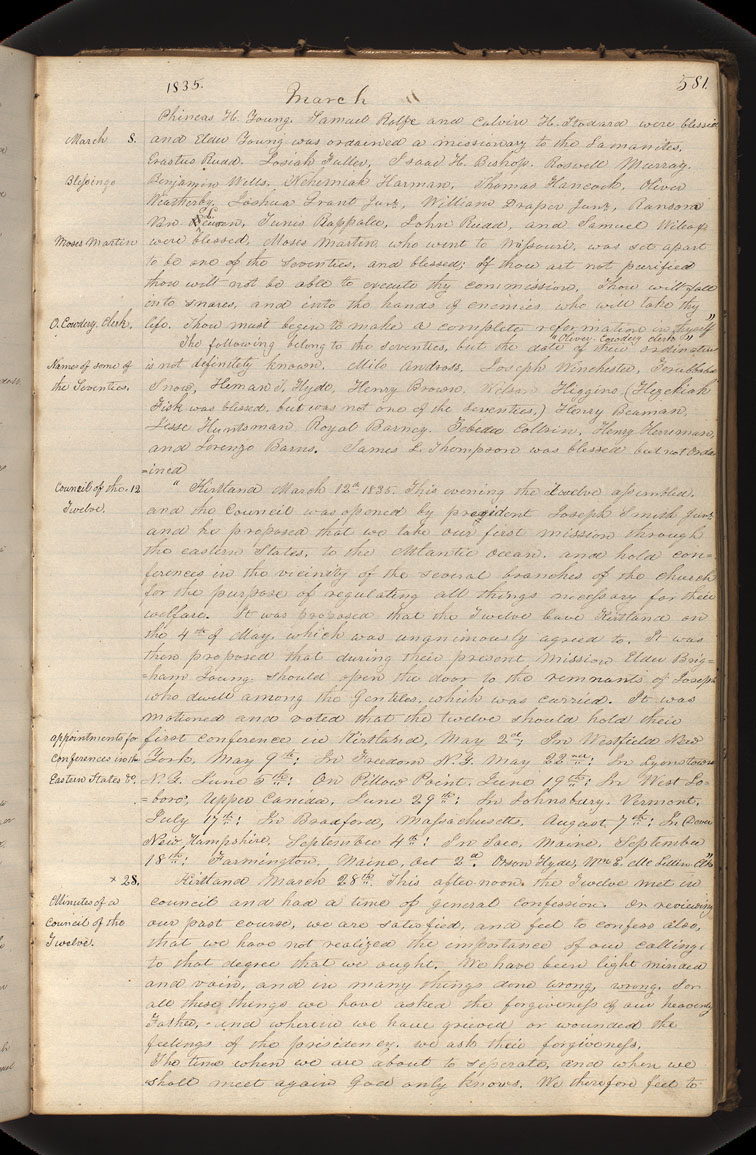 1835. 581.
March
Phineas H. Young. Samuel Rolfe and Calvin H. Stodard were blessed
March 8. and Elder Young was ordained a missionary to the Lamanites.
Erastus Rudd. Josiah Fuller, Isaac H. Bishop. Rosvell Murray.
Blessings Benjamin Wells, Nehemiah Harman, Thomas Hancock, Oliver
Weatherby, Joshua Grant Junr, William Draper Junr, Ransom
Van Leuven, Tunis Rappalee, John Rudd, and Samuel Wilcox
Moses Martin were blessed. Moses Martin who went to Missouri, was set apart
to be one of the seventies, and blessed; If thou art not purified
thou will not be able to execute thy commission. Thou will fall
into snares, and into the hands of enemies who will take thy
O. Cowdery. Clerk. life. Thou must begin to make a complete reformation in thyself"
"Oliver Cowdery clerk"
The following belong to the seventies, but the date of their ordination
Names of some of is not definitely known. Milo Andross. Joseph Winchester, Zerubbabel
the Seventies. Snow, Heman T. Hyde. Henry Brown. Nelson Higgins (Hezekiah
Fisk was blessed, but was not one of the seventies,) Henry Beaman,
Jesse Huntsman, Royal Barney. Zebedee Coltrin. Henry Herriman,
and Lorenzo Barns. James L. Thompson was blessed but not orda
=ined
Council of the 12 " Kirtland March 12th 1835. This evening the twelve assembled.
Twelve. and the Council was opened by president Joseph Smith Junr
and he proposed that we take our first mission through
the eastern States, to the Atlantic Ocean. and hold con=
ferences in the vicinity of the several branches of the church
for the purpose of regulating all things necessary for their
welfare. It was proposed that the Twelve leave Kirtland on
the 4th of May. which was unanimously agreed to. It was
then proposed that during their present mission Elder Brig=
=ham Young should open the door to the remnants of Joseph
who dwell among the Gentiles, which was carried. It was
motioned and voted that the twelve should hold their
appointments for first conference in Kirtland, May 2nd; In Westfield New
conferences in the York, May 9th; In Freedom N.Y. May 22nd; In Lyonstown
Eastern States &c. N.Y. June 5th; On Pillow Point. June 19th; In West Lo-
=boro, Upper Canida, June 29th; In Johnsbury. Vermont,
July 17th; In Bradford, Massachusetts. August, 7th; In Dover
New Hampshire, September 4th; In Saco, Maine, September
18th; Farmington. Maine, Oct 2d. Orson Hyde, Wm E. Mc Lellin, Clks"
× 28. Kirtland March 28th. This afternoon the Twelve met in
Minutes of a council and had a time of general confession. On reviewing
council of the our past course, we are satisfied, and feel to confess also,
Twelve. that we have not realized the importance of our calling,
to that degree that we ought. We have been light minded
and vain, and in many things done wrong, wrong. For
all these things we have asked the forgiveness of our heavenly
Father, and wherein we have grieved or wounded the
feelings of the presidency. we ask their forgiveness.
The time when we are about to seperate, and when we
shall meet again God only knows. We therefore feel to